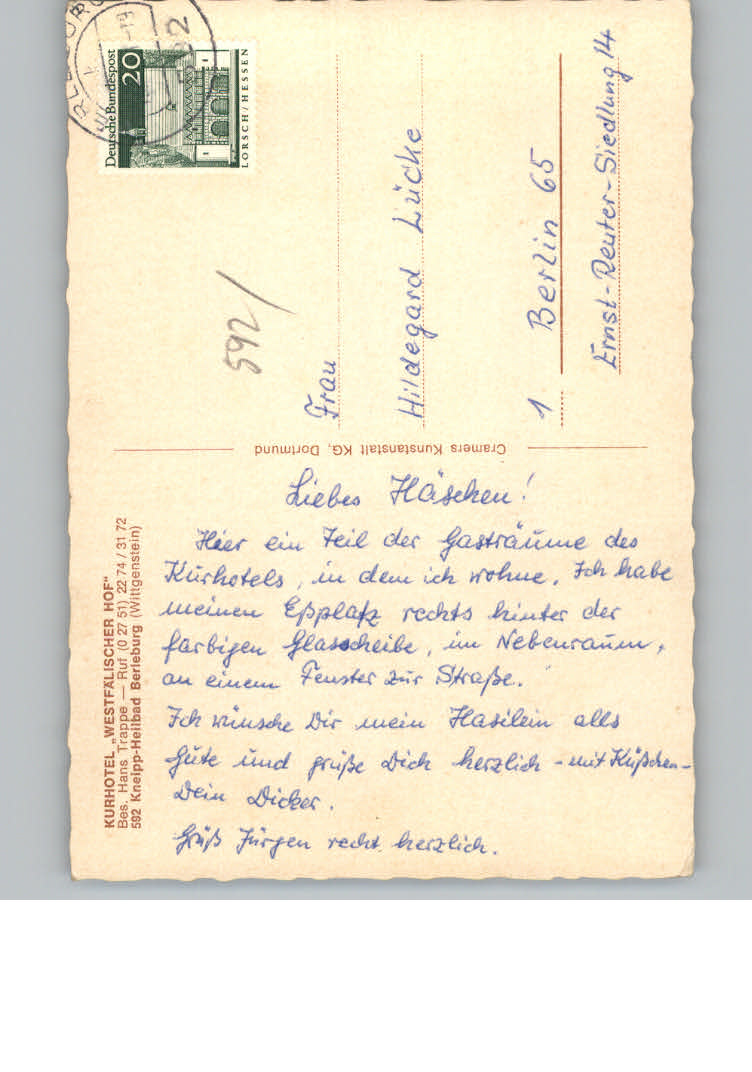 KURHOTEL „WESTFÄLISCHER HOF“
Bes. Hans Trappe — Ruf (0 27 51) 22 74 / 31 72
592 Kneipp-Heilbad Berleburg (Wittgenstein)
Liebes Häschen!
Hier ein Teil der Gasträume des
Kurhotels, in dem ich wohne. Ich habe
meinen Eßplatz rechts hinter der
farbigen Glasscheibe, im Nebenraum,
an einem Fenster zur Straße.
Ich wünsche Dir mein Hasilein alls
Gute und grüße Dich herzlich - mit Küßchen -
Dein Dicker.
Grüß Jürgen recht herzlich.
Cramers Kunstanstalt KG, Dortmund
Deutsche Bundespost
20
LORSCH/HESSEN
592/
Frau
Hildegard Lücke
1 Berlin 65
Ernst-Reuter-Siedlung 14